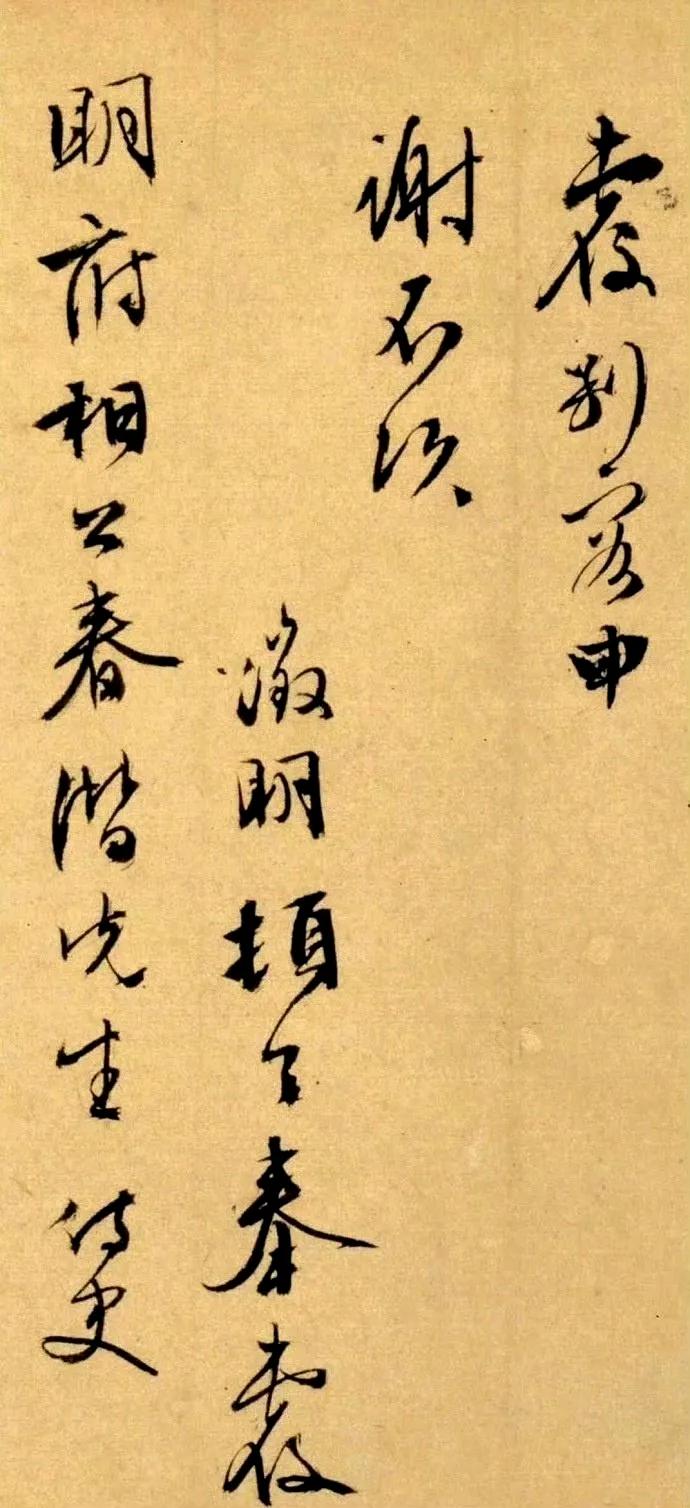 覆別容申
謝不次
徵明頓首奉覆
明府相公春潛先生 侍史